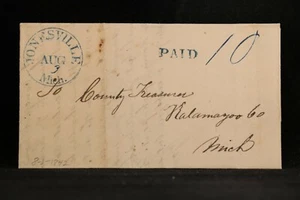 JONESVILLE
AUG
9
Mich.
PAID 10
To County Treasurer
Kalamazoo Co
Mich